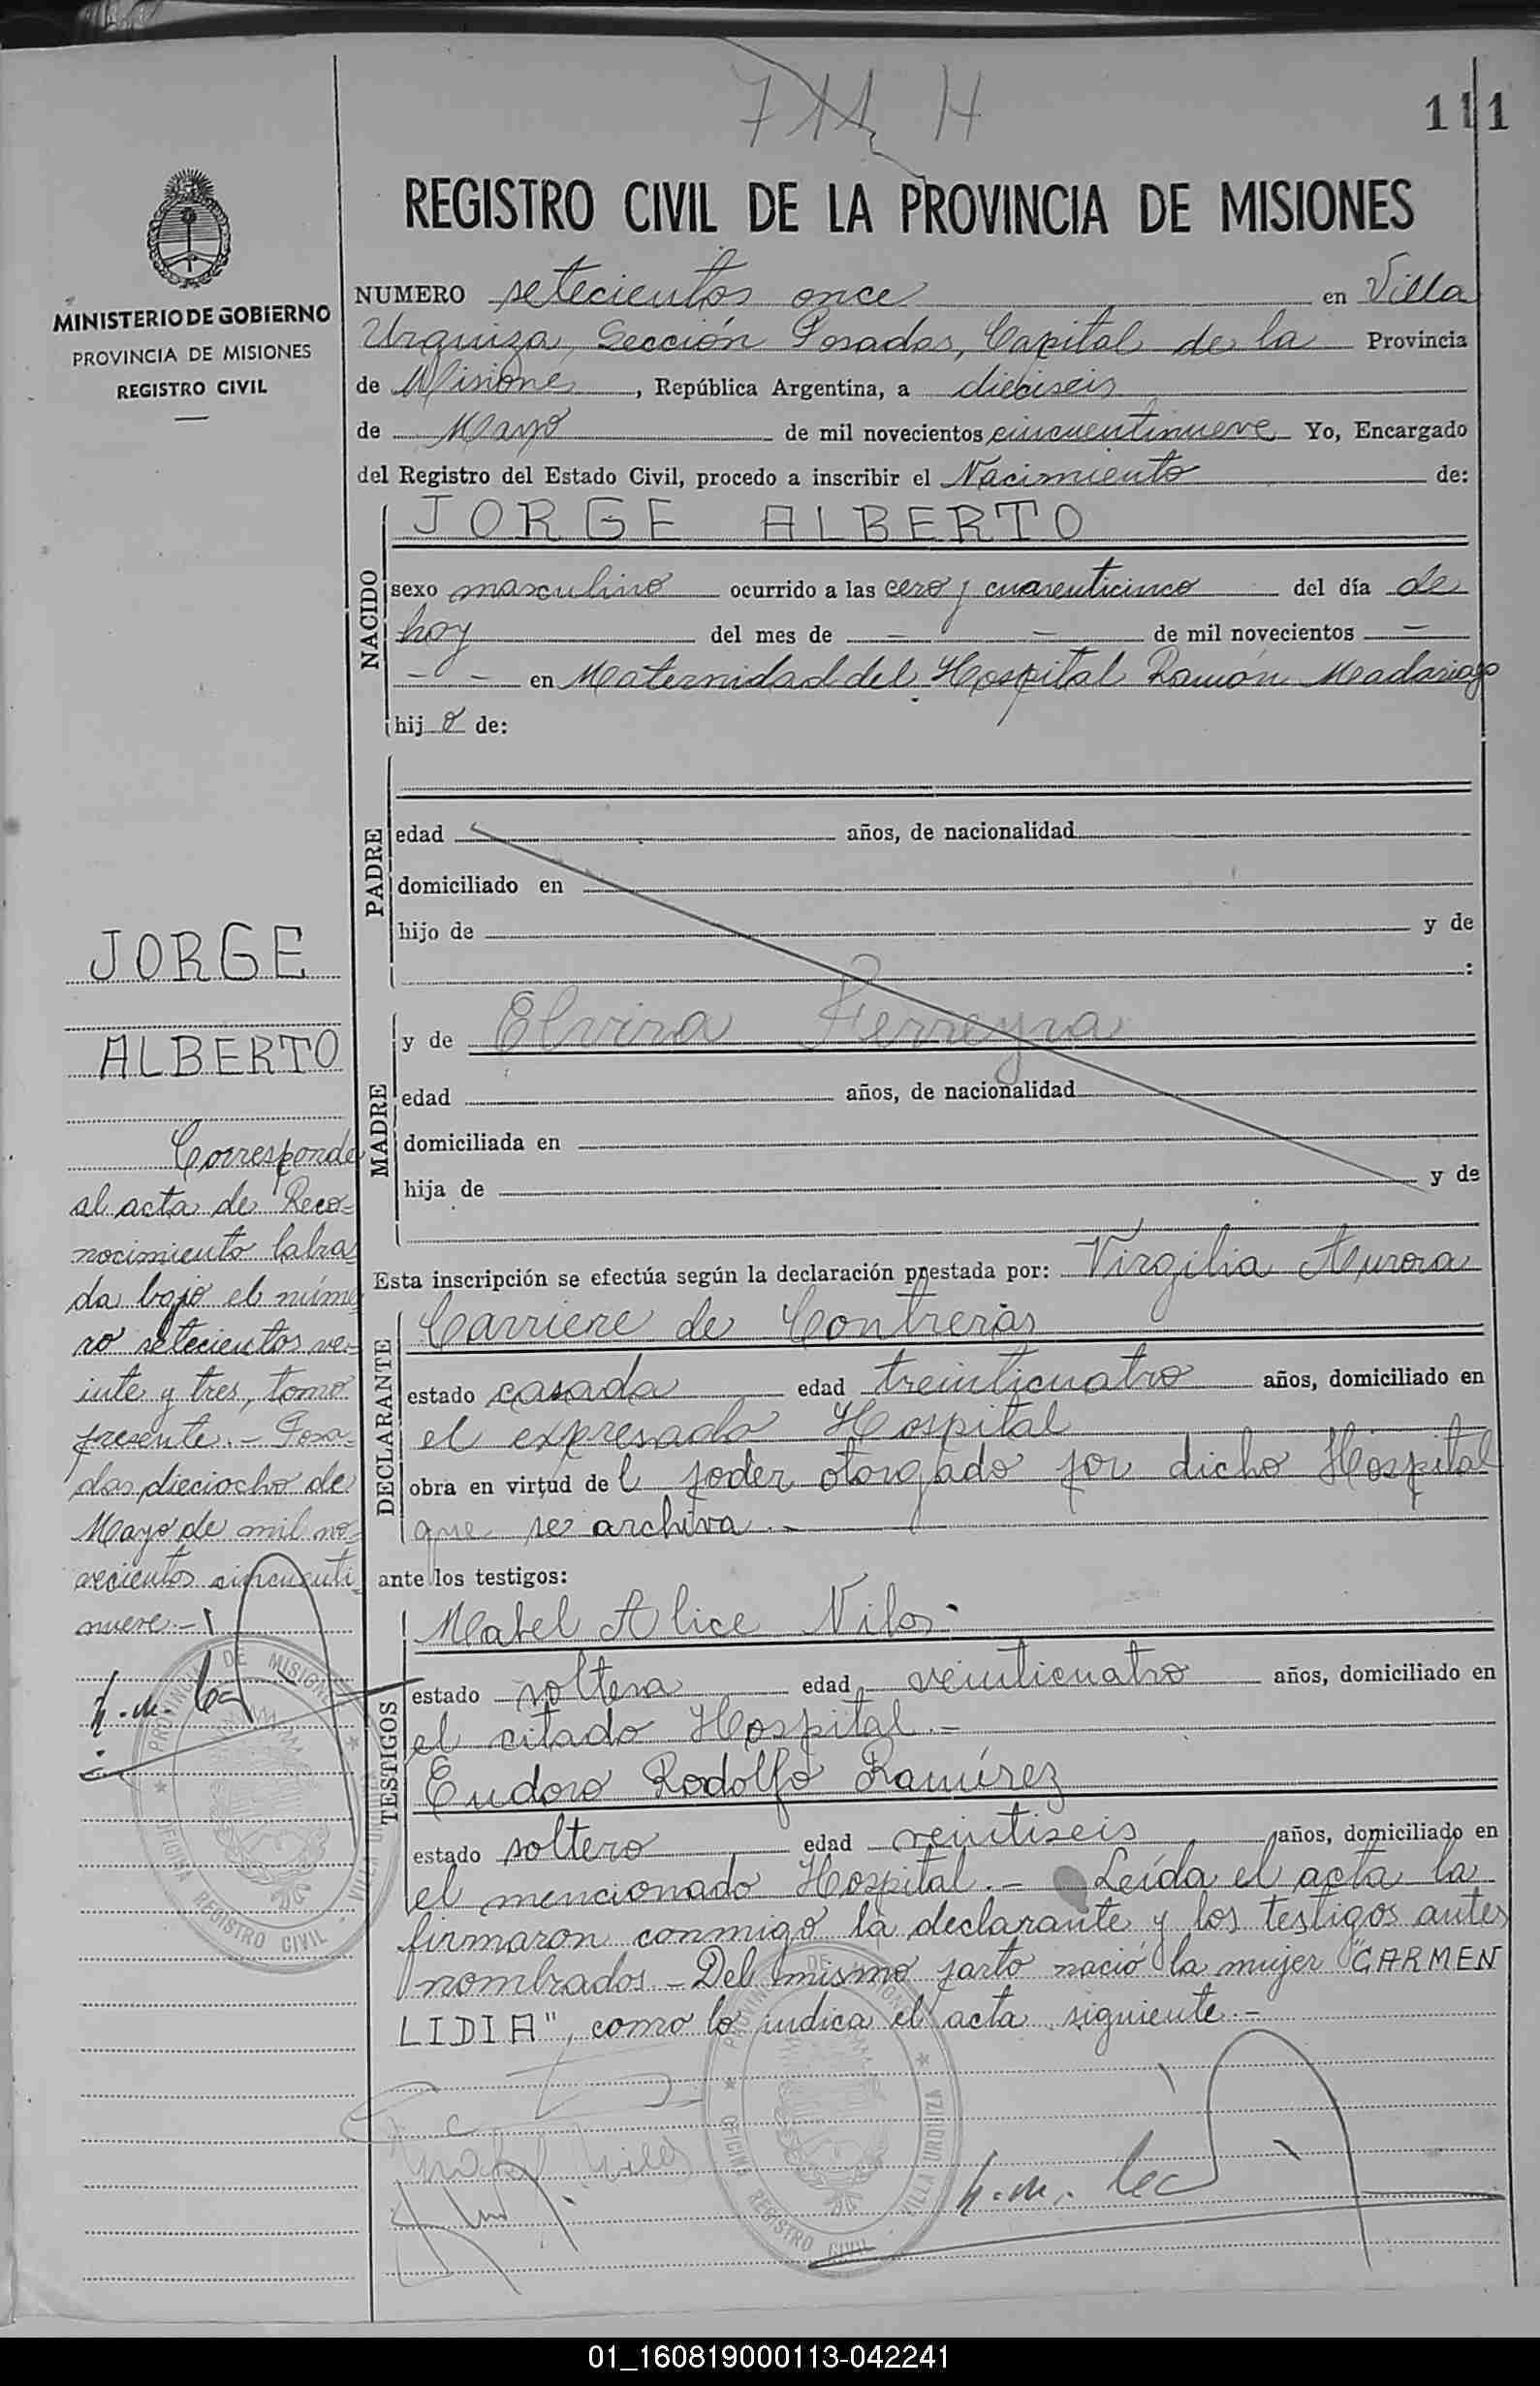 711 H
111
REGISTRO CIVIL DE LA PROVINCIA DE MISIONES
MINISTERIO DE GOBIERNO
PROVINCIA DE MISIONES
REGISTRO CIVIL
NUMERO setecientos once en Villa
Urquiza, Sección Posadas, Capital de la Provincia
de Misiones, República Argentina, a dieciseis
de Mayo de mil novecientos cincuentinueve Yo, Encargado
del Registro del Estado Civil, procedo a inscribir el Nacimiento de:
NACIDO
JORGE ALBERTO
sexo masculino ocurrido a las cero y cuarenticinco del día de
hoy del mes de - - de mil novecientos -
- - en Maternidad del Hospital Ramón Madariaga
hijo de:
PADRE
edad años, de nacionalidad
domiciliado en
hijo de y de
:
MADRE
y de Elvira Ferreyra
edad años, de nacionalidad
domiciliada en
hija de y de
Esta inscripción se efectúa según la declaración prestada por: Virgilia Aurora
DECLARANTE
Carriere de Contreras
estado casada edad treinticuatro años, domiciliado en
el expresado Hospital
obra en virtud del poder otorgado por dicho Hospital
que se archiva.-
ante los testigos:
TESTIGOS
Mabel Alice Vilos.
estado soltera edad veinticuatro años, domiciliado en
el citado Hospital.-
Eudoro Rodolfo Ramírez
estado soltero edad veintiseis años, domiciliado en
el mencionado Hospital.- Leída el acta la
firmaron conmigo la declarante y los testigos antes
nombrados.- Del mismo parto nació la mujer "CARMEN
LIDIA", como lo indica el acta siguiente.-
JORGE
ALBERTO
Corresponde
al acta de Reco=
nocimiento labra
da bajo el núme
ro setecientos ve=
inte y tres, tomo
presente.- Posa=
das dieciocho de
Mayo de mil no=
vecientos cincuenti
nueve.-
PROVINCIA DE MISIONES
OFICINA REGISTRO CIVIL
PROVINCIA DE MISIONES
OFICINA REGISTRO CIVIL
VILLA URQUIZA
01_160819000113-042241